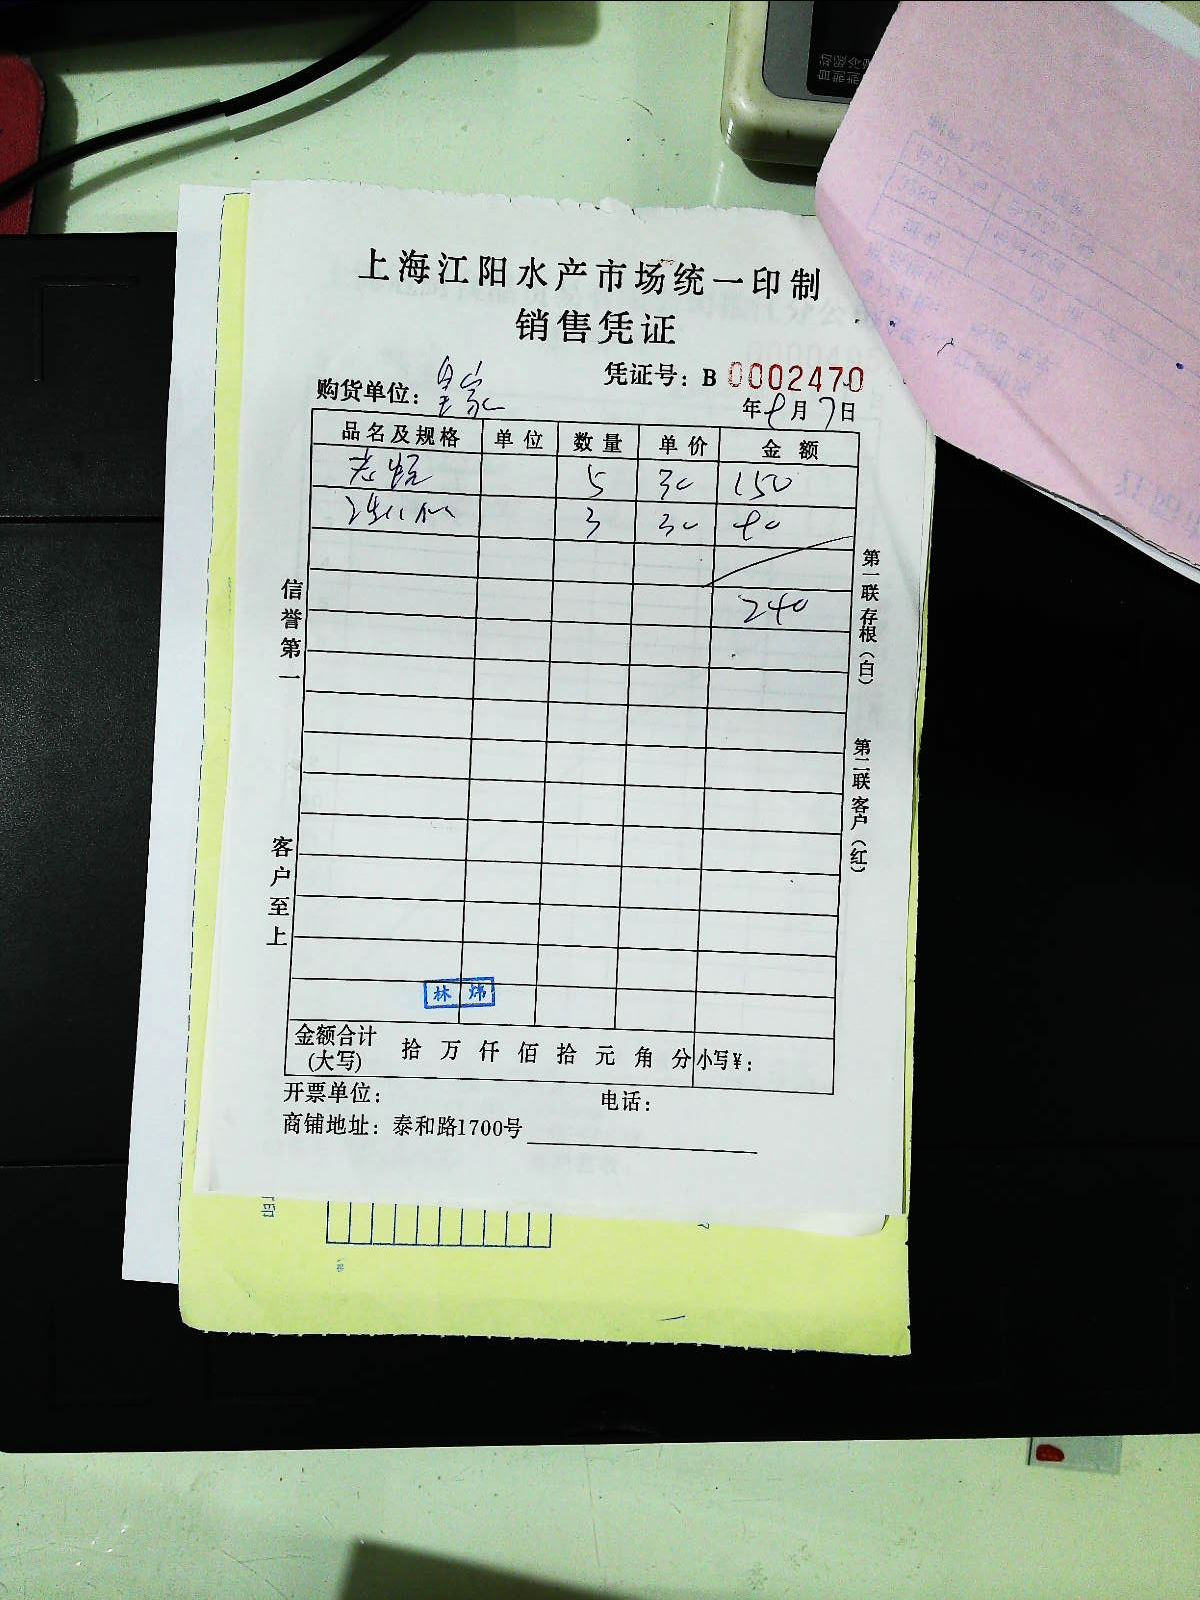 上海江阳水产市场统一印制
销售凭证
凭证号：B 0002470
购货单位：皇家
年 9 月 7 日
品名及规格 单位 数量 单价 金额
5 30 150
3 30 90
240
信誉第一
客户至上
第一联存根（白）
第二联客户（红）
林炜
金额合计(大写) 拾 万 仟 佰 拾 元 角 分 小写¥：
开票单位： 电话：
商铺地址：泰和路1700号